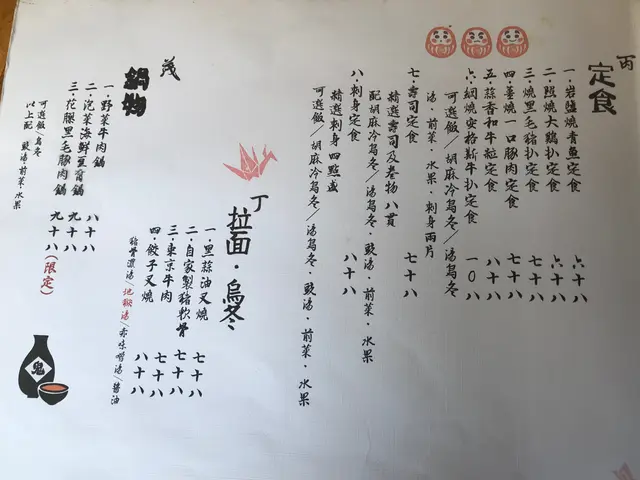 丙
定食
一·岩鹽燒青魚定食 六十八
二·照燒大鷄扒定食 六十八
三·燒黑毛豬扒定食 七十八
四·薑燒一口豚肉定食 七十八
五·蒜香和牛粒定食 八十八
六·網燒安格斯牛扒定食 一〇八
可選飯/胡麻冷烏冬/湯烏冬
湯·前菜·水果·刺身兩片
七·壽司定食 七十八
精選壽司及卷物八貫
配胡麻冷烏冬/湯烏冬·豉湯·前菜·水果
八·刺身定食 八十八
精選刺身四點盛
可選飯/胡麻冷烏冬/湯烏冬·豉湯·前菜·水果
丁
拉面·烏冬
一·黑蒜油叉燒 七十八
二·自家製豬軟骨 七十八
三·東京牛肉 七十八
四·餃子叉燒 八十八
豬骨濃湯/地獄湯/赤味噌湯/醬油
茂
鍋物
一·野菜牛肉鍋 八十八
二·泡菜海鮮豆腐鍋 九十八
三·花腩黑毛豚肉鍋 九十八(限定)
可選飯/烏冬
以上配 豉湯·前菜·水果
鬼